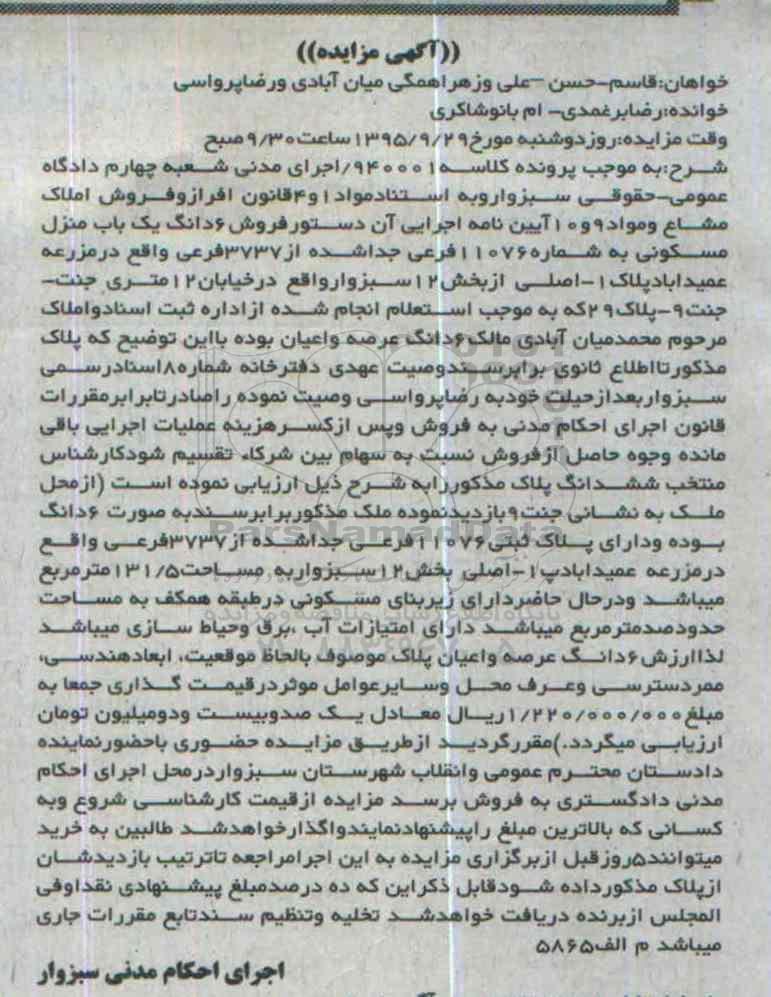 ((آگهی مزایده))
خواهان:قاسم-حسن -علی وزهراهمگی میان آبادی ورضاپرواسی
خوانده:رضابرغمدی- ام بانوشاکری
وقت مزایده:روزدوشنبه مورخ۱۳۹۵/۹/۲۹ساعت۹/۳۰صبح
شرح:به موجب پرونده کلاسه۹۴۰۰۰۱/اجرای مدنی شعبه چهارم دادگاه
عمومی-حقوقی سبزواروبه استنادمواد۱و۴قانون افرازوفروش املاک
مشاع ومواد۹و۱۰آیین نامه اجرایی آن دستورفروش۶دانگ یک باب منزل
مسکونی به شماره۱۱۰۷۶فرعی جداشده از۳۷۳۷فرعی واقع درمزرعه
عمیدابادپلاک۱-اصلی ازبخش۱۲سبزوارواقع درخیابان۱۲متری جنت-
جنت۹-پلاک۲۹که به موجب استعلام انجام شده ازاداره ثبت اسنادواملاک
مرحوم محمدمیان آبادی مالک۶دانگ عرصه واعیان بوده بااین توضیح که پلاک
مذکورتااطلاع ثانوی برابرسندوصیت عهدی دفترخانه شماره۸اسنادرسمی
سبزواربعدازحیلت خودبه رضاپرواسی وصیت نموده راصادرتابرابرمقررات
قانون اجرای احکام مدنی به فروش وپس ازکسرهزینه عملیات اجرایی باقی
مانده وجوه حاصل ازفروش نسبت به سهام بین شرکاء تقسیم شودکارشناس
منتخب ششدانگ پلاک مذکوررابه شرح ذیل ارزیابی نموده است (ازمحل
ملک به نشانی جنت۹بازدیدنموده ملک مذکوربرابرسندبه صورت ۶دانگ
بوده ودارای پلاک ثبتی۱۱۰۷۶فرعی جداشده از۳۷۳۷فرعی واقع
درمزرعه عمیدابادپ۱-اصلی بخش۱۲سبزواربه مساحت۱۳۱/۵مترمربع
میباشد ودرحال حاضردارای زیربنای مسکونی درطبقه همکف به مساحت
حدودصدمترمربع میباشد دارای امتیازات آب ،برق وحیاط سازی میباشد
لذاارزش۶دانگ عرصه واعیان پلاک موصوف بالحاظ موقعیت، ابعادهندسی،
ممردسترسی وعرف محل وسایرعوامل موثردرقیمت گذاری جمعا به
مبلغ۱/۲۲۰/۰۰۰/۰۰۰ریال معادل یک صدوبیست ودومیلیون تومان
ارزیابی میگردد.)مقررگردید ازطریق مزایده حضوری باحضورنماینده
دادستان محترم عمومی وانقلاب شهرستان سبزواردرمحل اجرای احکام
مدنی دادگستری به فروش برسد مزایده ازقیمت کارشناسی شروع وبه
کسانی که بالاترین مبلغ راپیشنهادنمایندواگذارخواهدشد طالبین به خرید
میتوانند۵روزقبل ازبرگزاری مزایده به این اجرامراجعه تاترتیب بازدیدشان
ازپلاک مذکورداده شودقابل ذکراین که ده درصدمبلغ پیشنهادی نقداوفی
المجلس ازبرنده دریافت خواهدشد تخلیه وتنظیم سندتابع مقررات جاری
میباشد م الف۵۸۶۵
اجرای احکام مدنی سبزوار
ParsNamadData